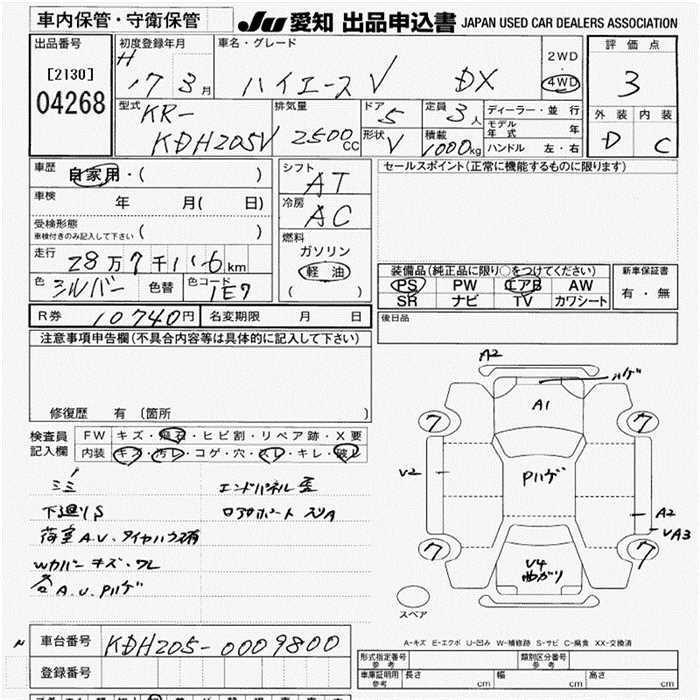 車内保管・守衛保管
JU 愛知 出品申込書 JAPAN USED CAR DEALERS ASSOCIATION
出品番号
[2130]
04268
初度登録年月
H 17 3 月
車名・グレード
ハイエース V DX
2WD
・
4WD
評価点
3
外装 内装
D C
型式
KR-
KDH205V
排気量
2500 CC
ドア
5
定員
3 人
形状
V
積載
1000 kg
ディーラー・並行
モデル年式 年
ハンドル 左・右
車歴
自家用・( )
車検
年 月( 日)
受検形態
車検付きのみ記入して下さい ( )
走行
28万7千116 km
色 シルバー 色替 色コード 1E7
シフト
AT
冷房
AC
燃料
ガソリン
軽油
( )
R券 10740円 名変期限 月 日
セールスポイント(正常に機能するものに限ります)
装備品(純正品に限り○をつけてください)
PS PW エアB AW
SR ナビ TV カワシート
新車保証書
有・無
後日品
注意事項申告欄(不具合内容等は具体的に記入して下さい)
修復歴 有 (箇所 )
検査員
記入欄
FW キズ・飛石・ヒビ割・リペア跡・X要
内装 キズ・汚レ・コゲ・穴・スレ・キレ・破レ
下廻りS
エンドパネル歪
荷室A.U.タイヤハウス有
Wカバーキズ・ワレ
各A.U.Pハゲ
A2
ハゲ
A1
7 7
V2
Pハゲ
A2
VA3
7 7
V4
曲がり
スペア
A-キズ E-エクボ U-凹み W-補修跡 S-サビ C-腐食 XX-交換済
車台番号 KDH205-0009800
登録番号
形式指定番号
参考
類別区分番号
参考
車庫証明用
参考
長さ cm 幅 cm 高さ cm